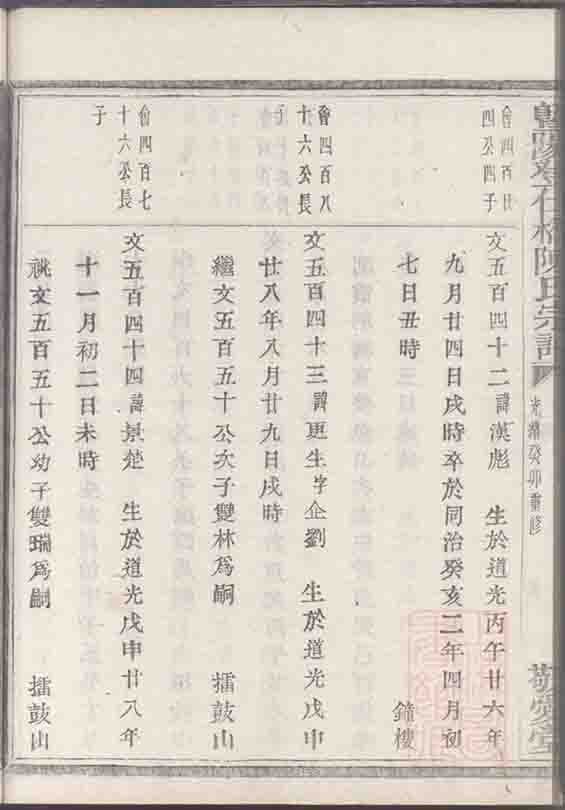 陳氏宗譜
光緒癸卯重修
敬愛堂
會四百廿
四公四子
文五百四十二諱漢彪 生於道光丙午廿六年
九月廿四日戌時卒於同治癸亥二年四月初
七日丑時 鐘樓
會四百八
十六公長
子
文五百四十三諱更生字企劉 生於道光戊申
廿八年八月廿九日戌時
繼文五百五十公次子雙林爲嗣 擂鼓山
會四百七
十六公長
子
文五百四十四諱景楚 生於道光戊申廿八年
十一月初二日未時
祧文五百五十公幼子雙瑞爲嗣 擂鼓山